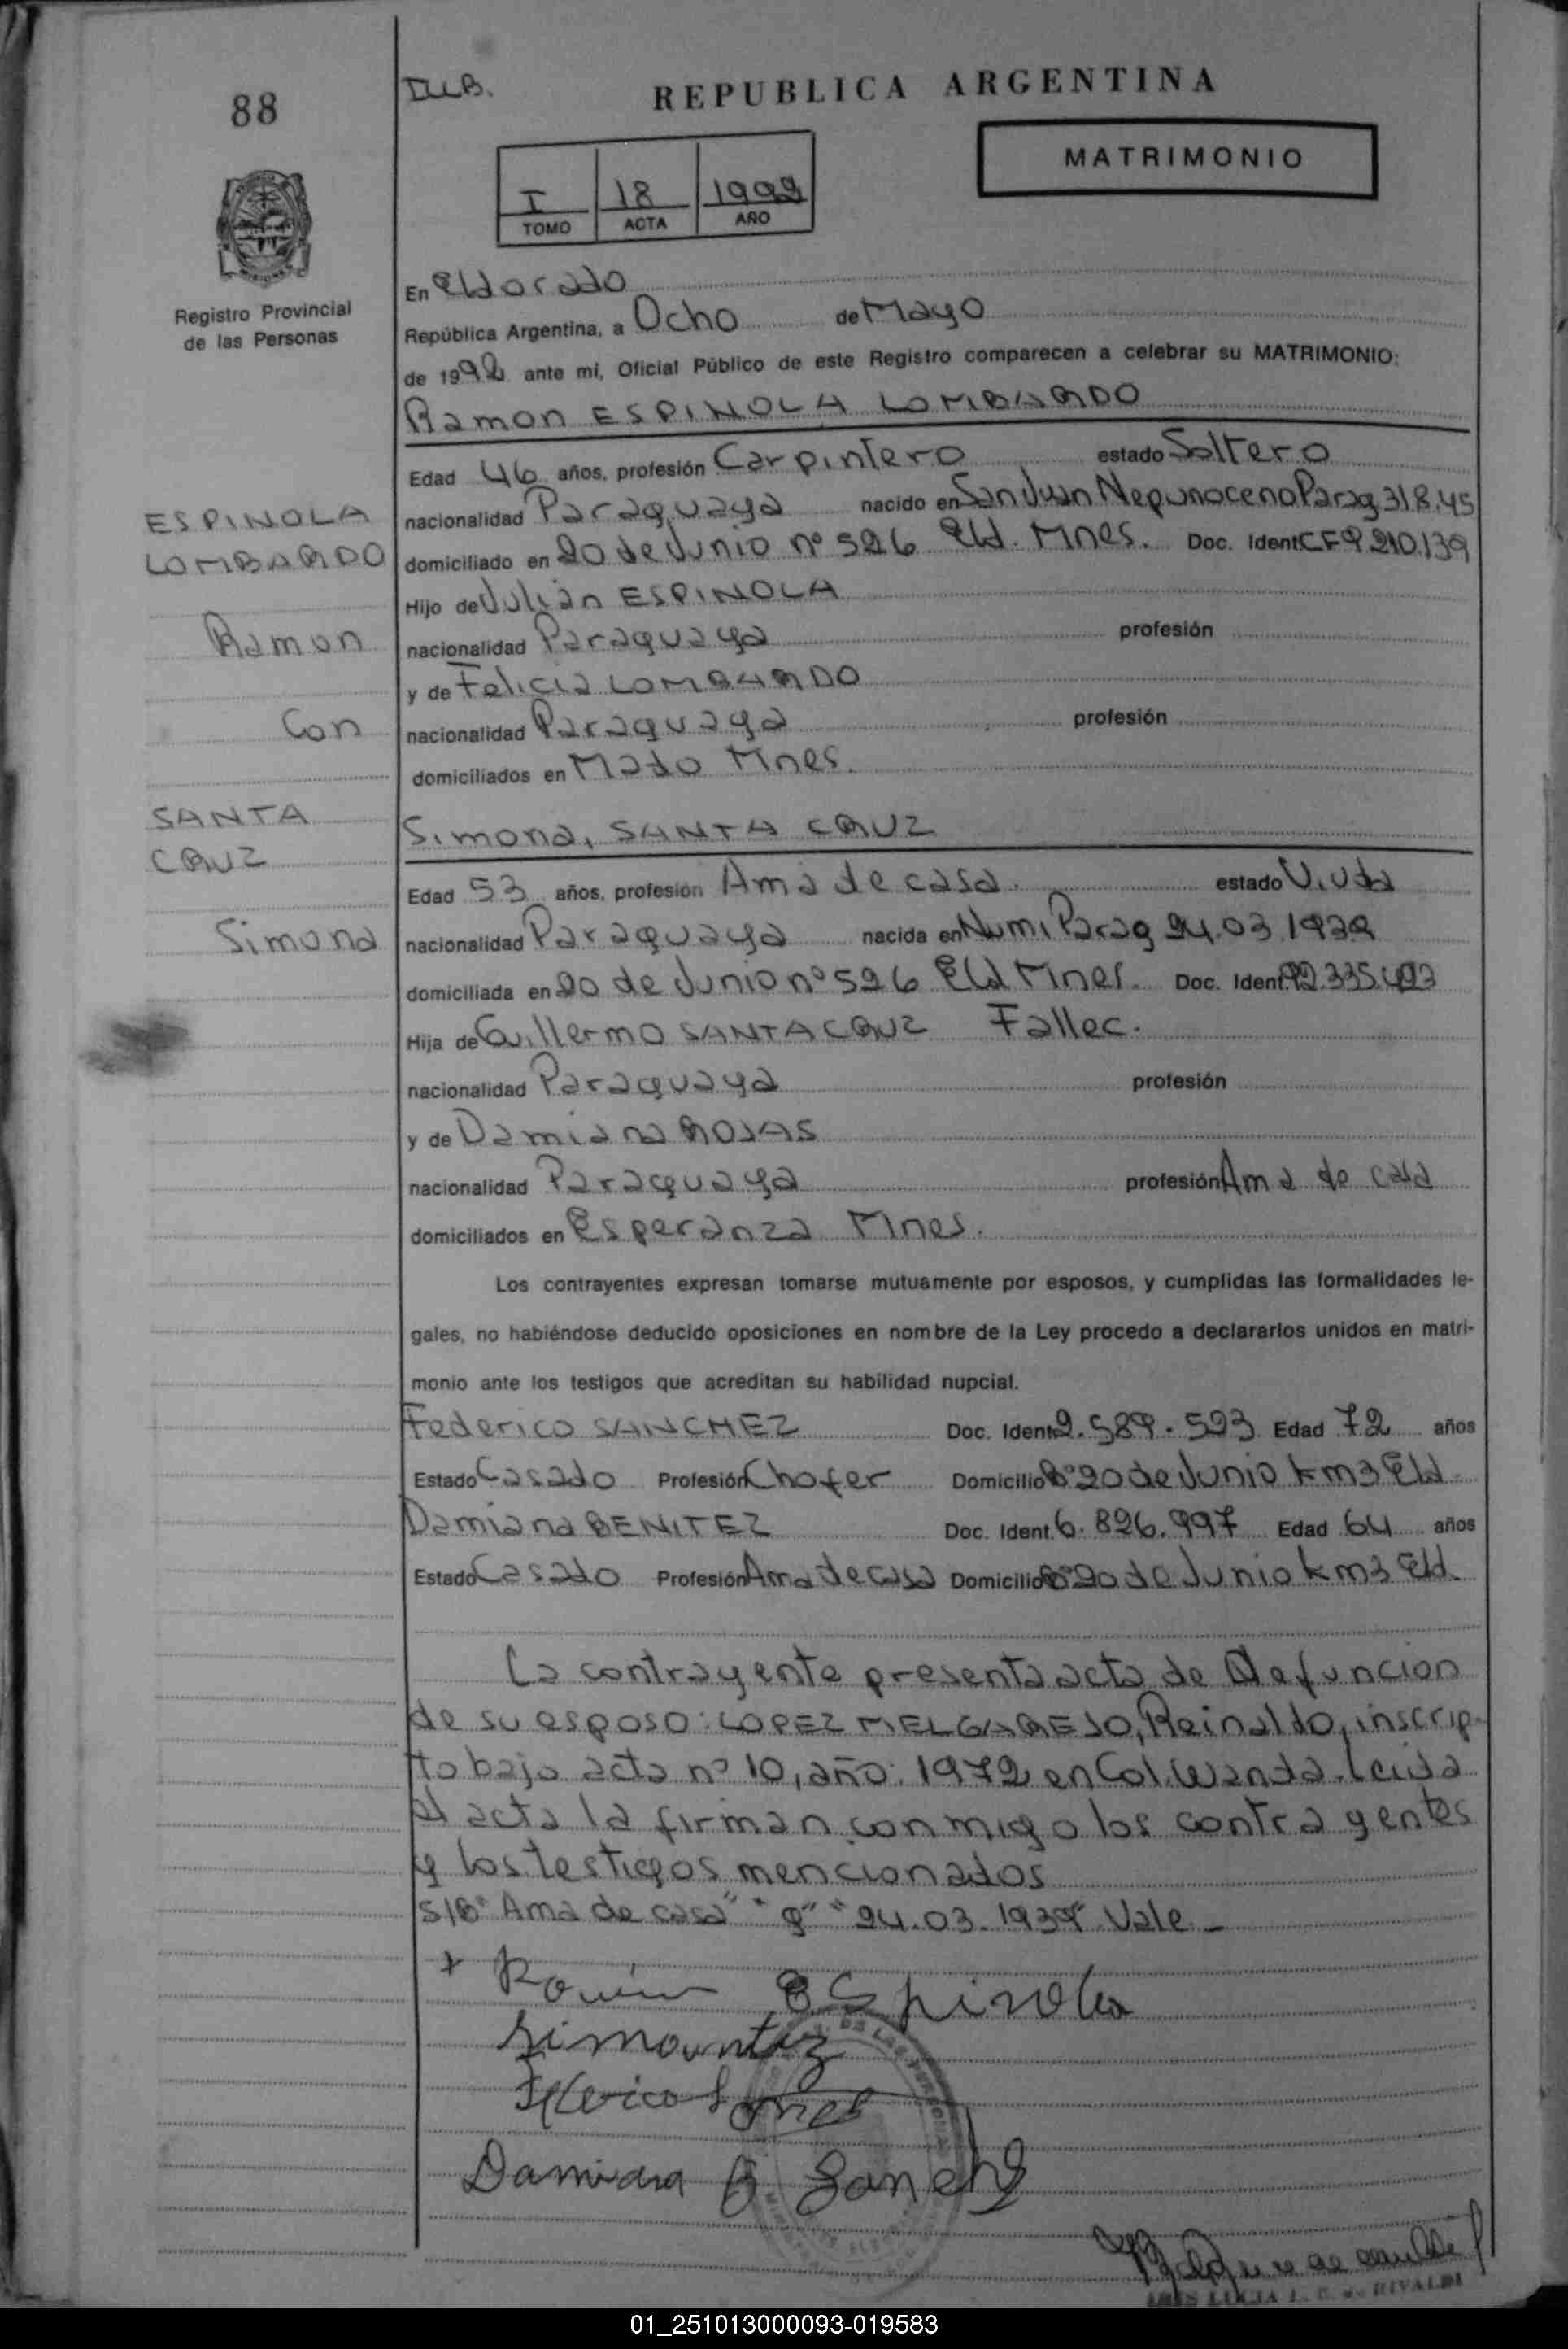 88
I.L.B.
REPUBLICA ARGENTINA
MATRIMONIO
I 18 1992
TOMO ACTA AÑO
MISIONES
Registro Provincial
de las Personas
En Eldorado
República Argentina, a Ocho de Mayo
de 1992 ante mi, Oficial Público de este Registro comparecen a celebrar su MATRIMONIO:
Ramon ESPINOLA LOMBARDO
Edad 46 años, profesión Carpintero estado Soltero
ESPINOLA
nacionalidad Paraguaya nacido en San Juan Nepunoceno Parag 31 8.45
LOMBARDO
domiciliado en 20 de Junio nº 526 Eld. Mnes. Doc. Ident CF 9.210.139
Hijo de Julian ESPINOLA
Ramon
nacionalidad Paraguaya profesión
y de Felicia LOMBARDO
Con
nacionalidad Paraguaya profesión
domiciliados en Mado Mnes.
SANTA
CRUZ
Simona, SANTA CRUZ
Edad 53 años, profesión Ama de casa. estado Viuda
Simona
nacionalidad Paraguaya nacida en Numi Parag 24.03.1939
domiciliada en 20 de Junio nº 526 Eld Mnes. Doc. Ident 92.335.493
Hija de Guillermo SANTA CRUZ Fallec.
nacionalidad Paraguaya profesión
y de Damiana ROJAS
nacionalidad Paraguaya profesión Ama de casa
domiciliados en Esperanza Mnes.
Los contrayentes expresan tomarse mutuamente por esposos, y cumplidas las formalidades le-
gales, no habiéndose deducido oposiciones en nombre de la Ley procedo a declararlos unidos en matri-
monio ante los testigos que acreditan su habilidad nupcial.
Federico SANCHEZ Doc. Ident 2.589.593 Edad 72 años
Estado Casado Profesión Chofer Domicilio Bº 20 de Junio km3 Eld.
Damiana BENITEZ Doc. Ident. 6.826.997 Edad 64 años
Estado Casado Profesión Ama de casa Domicilio Bº 20 de Junio km3 Eld.
La contrayente presenta acta de Defuncion
de su esposo: LOPEZ MELGAREJO, Reinaldo, inscrip-
to bajo acta nº 10, año: 1972 en Col. Wanda. Leida
el acta la firman conmigo los contrayentes
y los testigos mencionados
S/B "Ama de casa" "9" "24.03.1939" Vale.-
+ Ramón Espinola
Federico Sanches
Damiana B. Sanchz
01_251013000093-019583